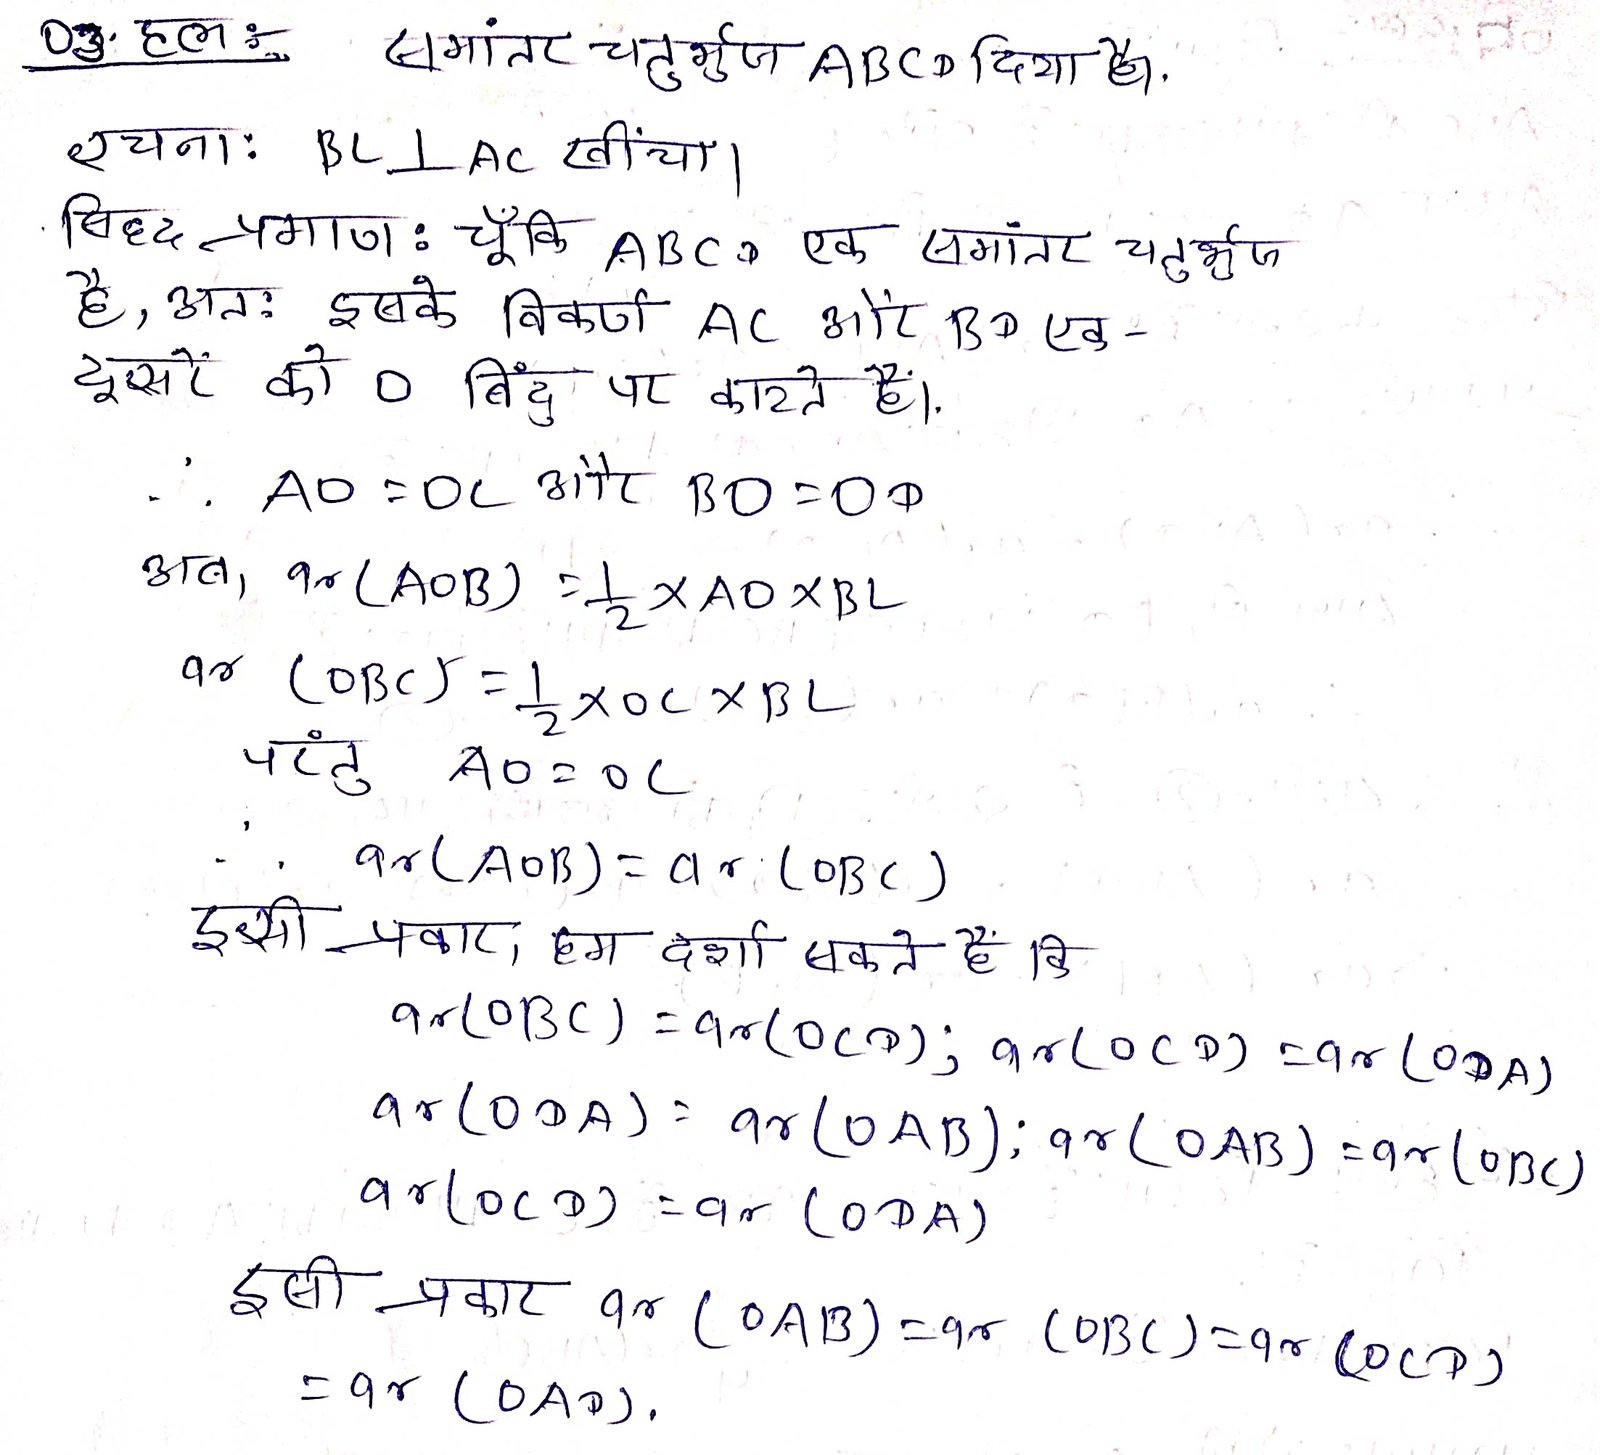 03. हल :- समांतर चतुर्भुज ABCD दिया है।
रचना: BL ⊥ AC खींचा।
सिद्द प्रमाण: चूँकि ABCD एक समांतर चतुर्भुज
है, अतः इसके विकर्ण AC और BD एक-
दूसरे को O बिंदु पर काटते हैं।
∴ AO = OC और BO = OD
अब, ar (AOB) = 1/2 × AO × BL
ar (OBC) = 1/2 × OC × BL
परंतु AO = OC
∴ ar (AOB) = ar (OBC)
इसी प्रकार, हम दर्शा सकते हैं कि
ar (OBC) = ar (OCD); ar (OCD) = ar (ODA)
ar (ODA) = ar (OAB); ar (OAB) = ar (OBC)
ar (OCD) = ar (ODA)
इसी प्रकार ar (OAB) = ar (OBC) = ar (OCD)
= ar (OAD).